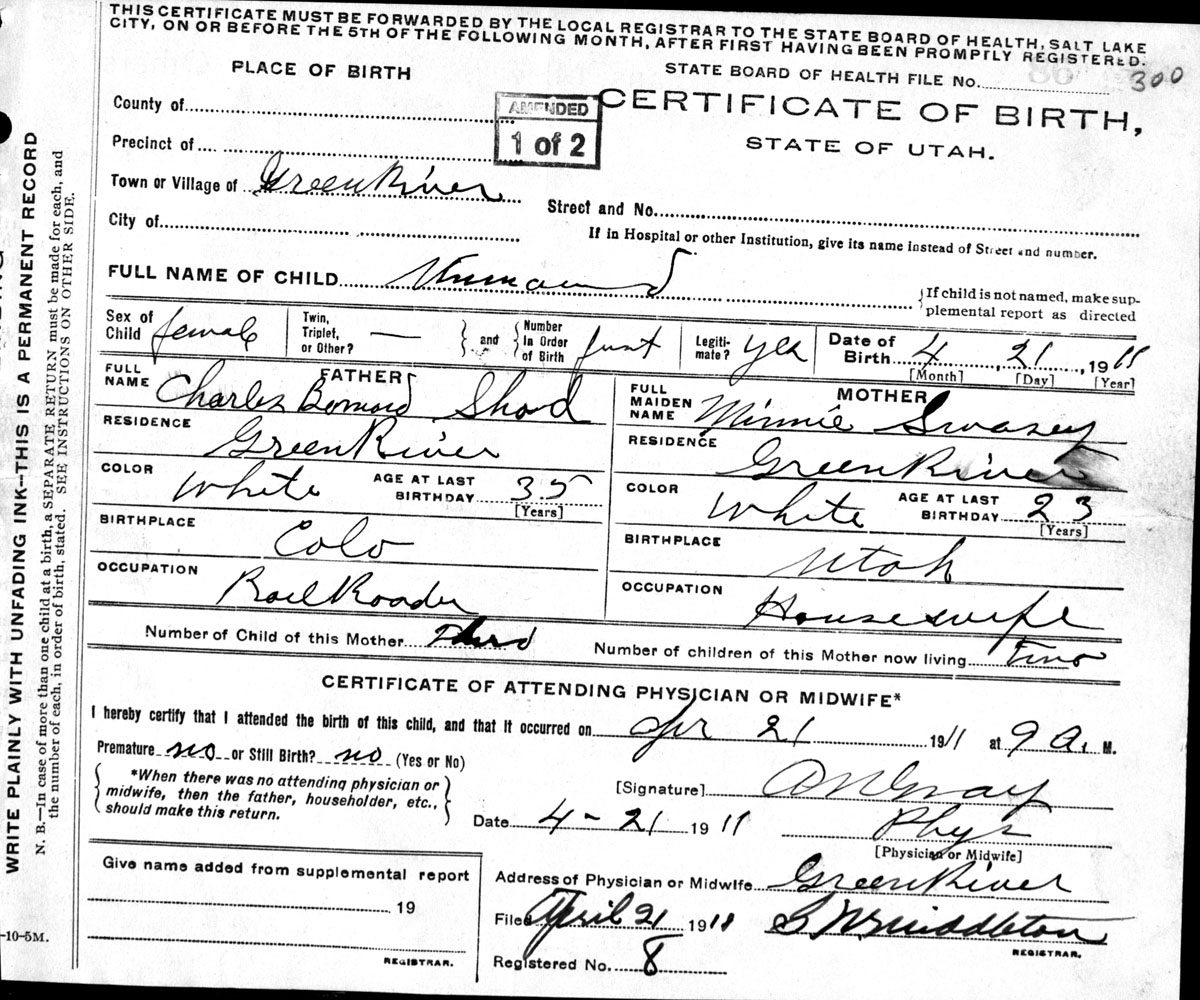 THIS CERTIFICATE MUST BE FORWARDED BY THE LOCAL REGISTRAR TO THE STATE BOARD OF HEALTH, SALT LAKE
CITY, ON OR BEFORE THE 5TH OF THE FOLLOWING MONTH, AFTER FIRST HAVING BEEN PROMPTLY REGISTERED.
PLACE OF BIRTH
STATE BOARD OF HEALTH FILE No. 300
County of
AMENDED
1 of 2
CERTIFICATE OF BIRTH,
STATE OF UTAH.
Precinct of
Town or Village of Green River
Street and No.
City of
If in Hospital or other Institution, give its name instead of Street and number.
FULL NAME OF CHILD Unnamed
{If child is not named, make sup-
plemental report as directed
Sex of Child female
Twin, Triplet, or Other? —
} and { Number In Order of Birth first
Legiti- mate? yes
Date of Birth 4, 21, 1911
[Month] [Day] [Year]
FATHER
FULL NAME Charles Bernard Shod
RESIDENCE Green River
COLOR White
AGE AT LAST BIRTHDAY 35
[Years]
BIRTHPLACE Colo
OCCUPATION Rail Roader
MOTHER
FULL MAIDEN NAME Minnie Swasey
RESIDENCE Green River
COLOR White
AGE AT LAST BIRTHDAY 23
[Years]
BIRTHPLACE Utah
OCCUPATION Housewife
Number of Child of this Mother Third
Number of children of this Mother now living Two
CERTIFICATE OF ATTENDING PHYSICIAN OR MIDWIFE*
I hereby certify that I attended the birth of this child, and that it occurred on Apr 21 1911 at 9 a. M.
Premature no or Still Birth? no (Yes or No)
{ *When there was no attending physician or
midwife, then the father, householder, etc.,
should make this return. }
[Signature]
Date 4-21 1911 Phys
[Physician or Midwife]
Give name added from supplemental report
19
REGISTRAR.
Address of Physician or Midwife Green River
Filed April 21 1911 Middleton
REGISTRAR.
Registered No. 8
-10-5M.
WRITE PLAINLY WITH UNFADING INK--THIS IS A PERMANENT RECORD
N. B.—In case of more than one child at a birth, a SEPARATE RETURN must be made for each, and
the number of each, in order of birth, stated. SEE INSTRUCTIONS ON OTHER SIDE.